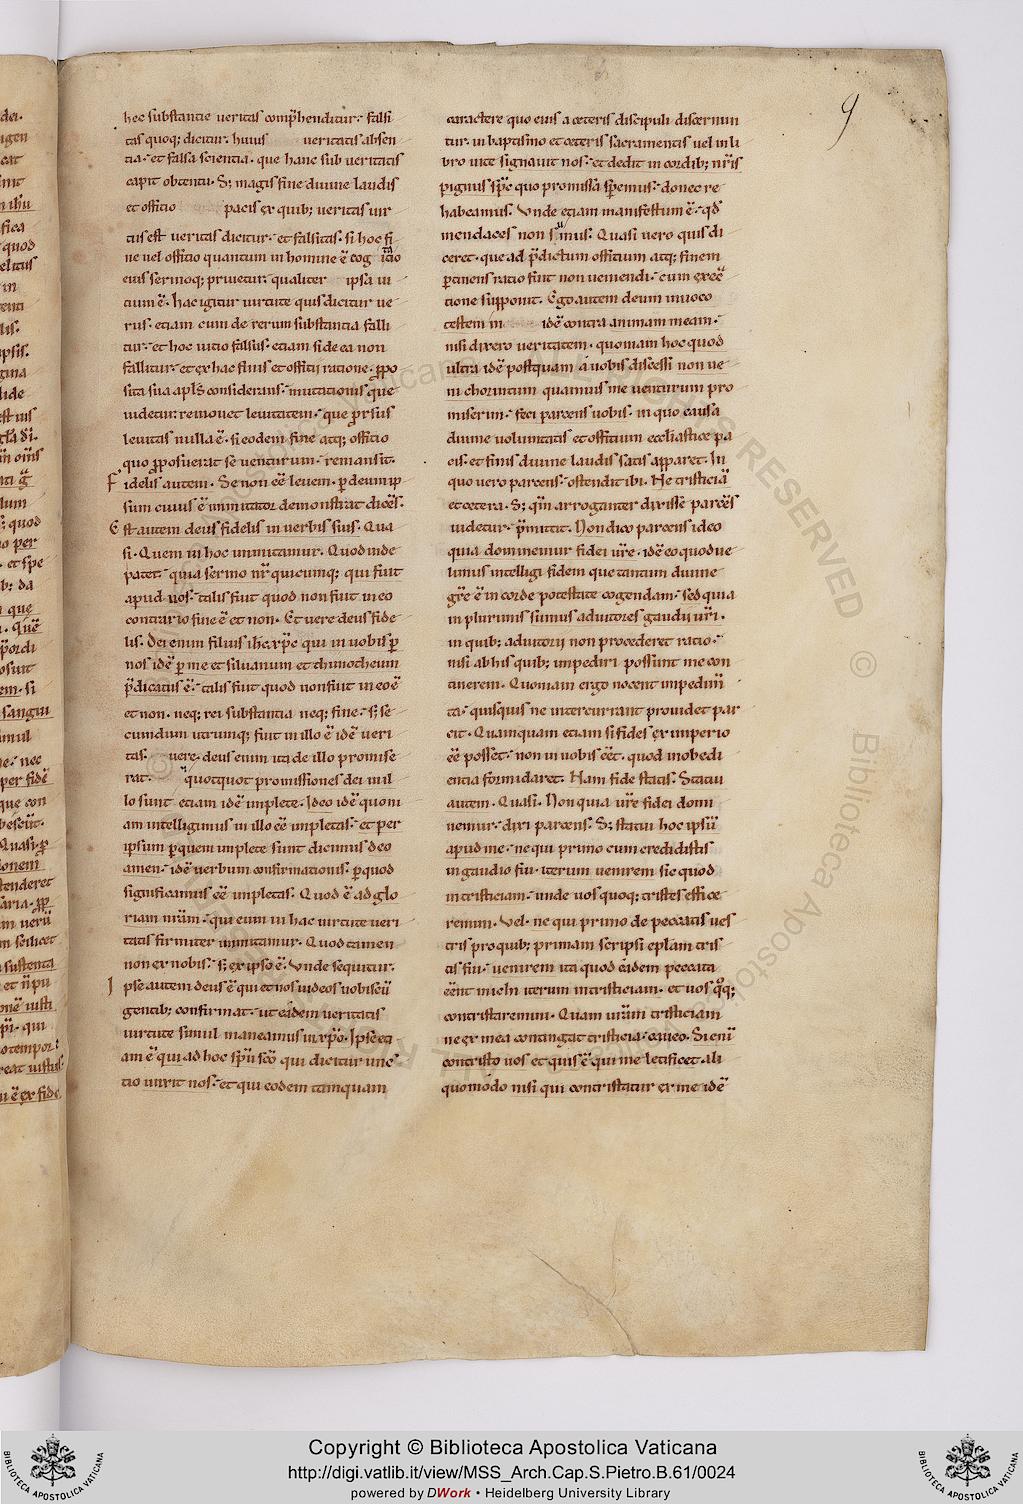 hec substantie ueritas comp̄henditur. falsi
tas quoq; dicitur. huius ueritatis absen
tia. et falsa scientia. que hanc sub ueritatis
capit obtentu. S; magis fine diuine laudis
et officio pacis ex quib; ueritas uir
tus est ueritas dicitur. et falsitas. si hoc fi
ne uel officio quantum in homine ē cog itatio
eius sermoq; priuetur. qualiter ipsa ui
tium ē. hac igitur uirtute quis dicitur ue
rus. etiam cum de rerum substantia falli
tur. et hoc uitio falsus. etiam si de ea non
fallitur. et ex hac finis et officii ratione. p̱po
sita sua apl̄s considerans. mutationis que
uidetur: remouet leuitatem. que prorsus
leuitas nulla ē. si eodem fine atq; officio
quo p̱posuerat se uenturum. remansit.
Fidelis autem. Se non eē leuem. p deum ip
sum cuius ē imitator demonstrat dicēs.
Est autem deus fidelis in uerbis suis. Qua
si. Quem in hoc imitamur. Quod inde
patet. quia sermo nr̄ quicumq; qui fuit
apud uos. talis fuit quod non fuit in eo
contrario fine ē et non. Et uere deus fide
lis. Dei enim filius ih̄c xp̄c qui in uobis p
nos idē p me et siluanum et thimotheum
p̄dicatus ē. talis fuit quod non fuit in eo ē
et non. neq; rei substantia neq; fine. s; se
cundum utrumq; fuit in illo ē idē ueri
tas. uere. deus enim ita de illo promise
rat. quotquot promissiones dei in il
lo sunt etiam idē implete. Ideo idē quoni
am intelligimus in illo eē impletas. et per
ipsum p quem implete sunt dicimus deo
amen. idē uerbum confirmationis. p quod
significamus eē impletas. Quod ē ad glo
riam nr̄am. qui eum in hac uirtute ueri
tatis firmiter imitamur. Quod tamen
non ex nobis. s; ex ipso ē. Vnde sequitur.
Ipse autem deus ē qui et nos iudeos uobiscū
gentib; confirmat. ut eadem ueritatis
uirtute simul maneamus in xp̄o. Ipse eti
am ē qui ad hoc sp̄u sc̄o qui dicitur unc
tio unxit nos. et qui eodem tamquam
caractere quo eius a ceteris discipuli discernun
tur. in baptismo et ceteris sacramentis uel in li
bro uite signauit nos. et dedit in cordib; nr̄is
pignus sp̄c quo promissa speremus. donec re
habeamus. Vnde etiam manifestum ē. qđ
mendaces non simus. Quasi uero quis di
ceret. que ad p̄dictum officium atq; finem
ptinens ratio fuit non ueniendi. cum exec̄
tione supponit. Ego autem deum inuoco
testem in idē contra animam meam.
nisi dixero ueritatem. quoniam hoc quod
ultra idē postquam a uobis discessi non ue
ni chorintum quamuis me uenturum pro
miserim. feci parcens uobis. in quo causa
diuine uoluntatis et officium ecclesiastice pa
cis. et finis diuine laudis satis apparet. In
quo uero parcens. ostendit ibi. Ne tristiciā
et cetera. S; qm̄ arroganter dixisse parcēs
uidetur. p̄mittit. Non dico parcens ideo
quia dominemur fidei ur̄e. idē eo quod ue
limus intelligi fidem que tantum diuine
gr̄e ē in corde potestate cogendam. sed quia
in plurimis sumus adiutores gaudii ur̄i.
in quib; adiutorii non procederet ratio.
nisi ab his quib; impediri possunt me con
tinerem. Quoniam ergo nocent impedim̄
ta. quisquis ne intercurrant prouidet par
cit. Quamquam etiam si fides ex imperio
eē posset. non in uobis eēt. quod inobedi
entia formidaret. Nam fide statis. Statui
autem. Quasi. Non quia ur̄e fidei domi
nemur. dixi parcens. S; statui hoc ipsū
apud me. ne qui primo cum credidistis
in gaudio fui. iterum uenirem sic quod
in tristiciam. unde uos quoq; tristes effice
remini. Vel. ne qui primo de peccatis ues
tris pro quib; primam scripsi ep̄lam tris
tis fui. uenirem ita quod eadem peccata
eēnt michi iterum in tristiciam. et uos q̊q;
contristaremini. Quam ur̄am tristiciam
ne ex mea contingat tristicia. caueo. Si enī
contristo uos et quis ē qui me letificet. ali
quomodo nisi qui contristatur ex me idē
9
Copyright © Biblioteca Apostolica Vaticana
http://digi.vatlib.it/view/MSS_Arch.Cap.S.Pietro.B.61/0024
powered by DWork • Heidelberg University Library